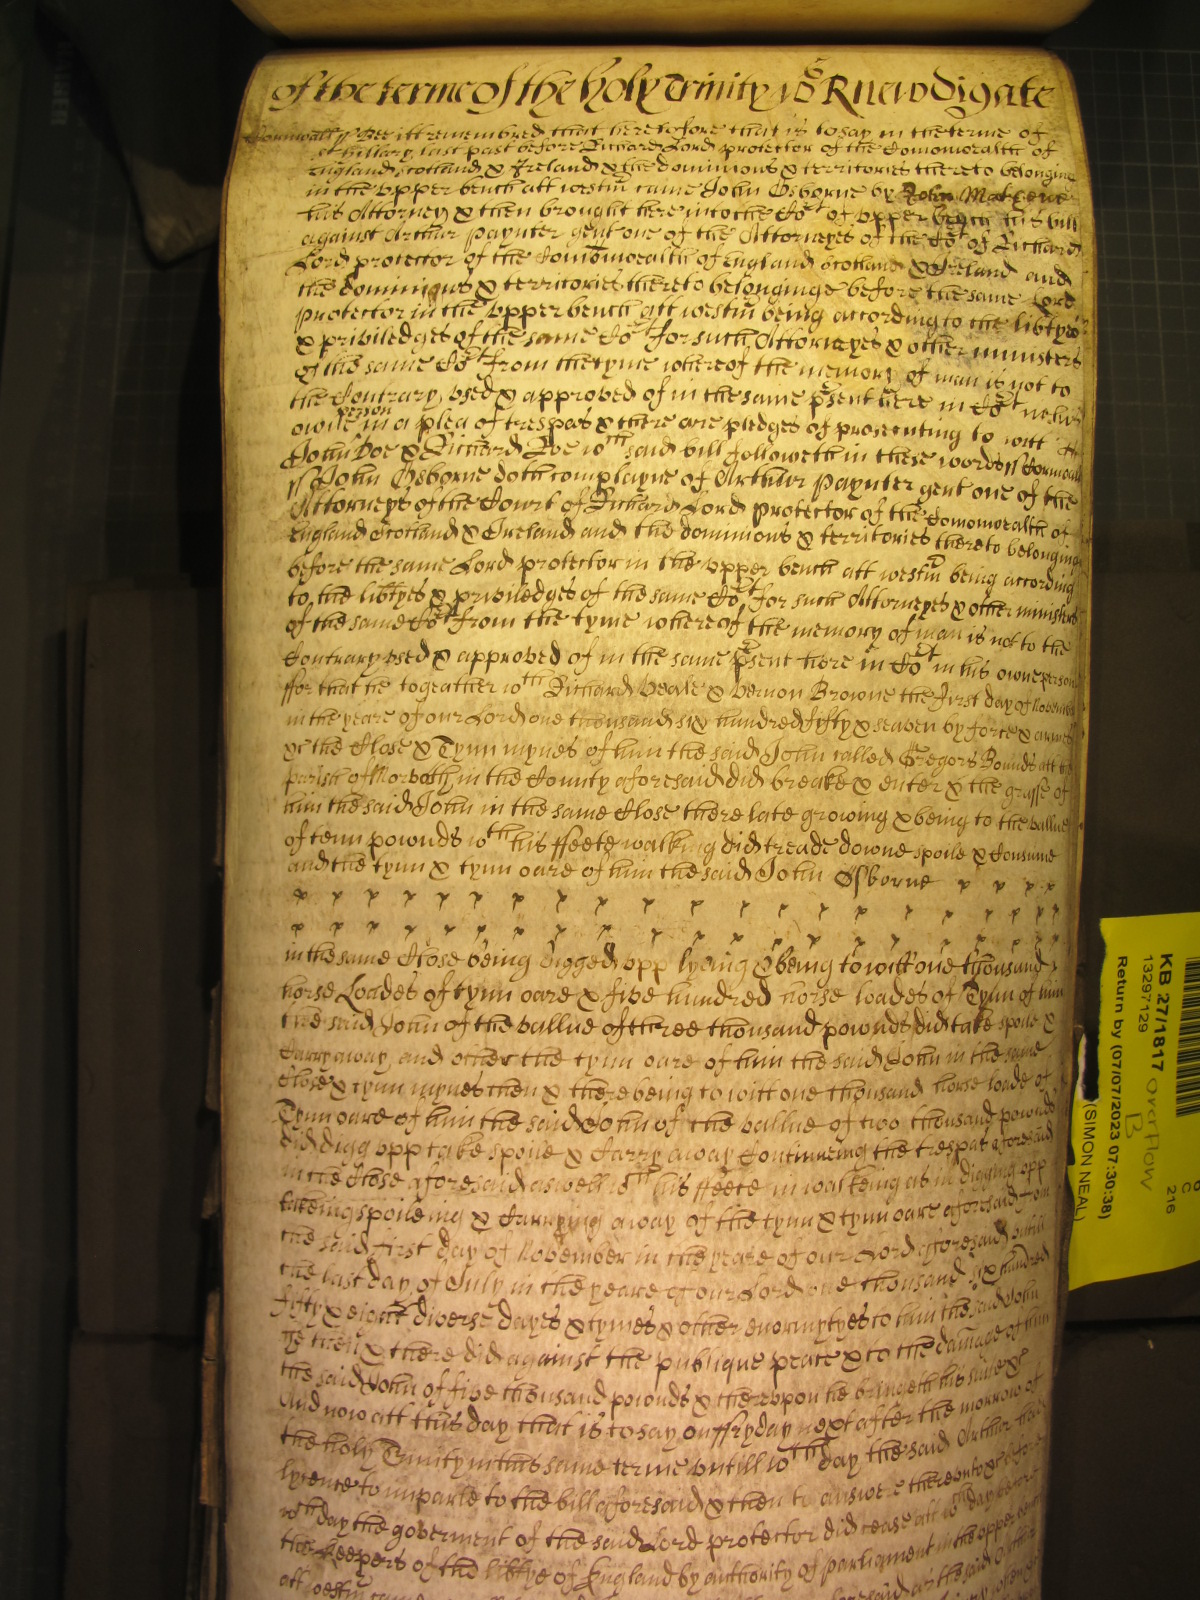 of the terme of the holy Trinity 1659 R newdigate
Cornwall ss Bee itt remembred that heretofore that is to say in the terme of
St hillary last past before Richard Lord protector of the Comonwealth of
England Scotland & Ireland & the dominions & territories thereto belonginge
in the vpper bench att westm came John Osborne by John
his Attorney & then brought here into the Cort of vpper bench his bill
against Arthur Paynter gent one of the Attorneyes of the Cort of Richard
Lord protector of the Comonwealth of England Scotland & Ireland and
the dominions & territories thereto belonginge before the same Lord
Protector in the vpper bench att westm being according to the libtyes
& priviledges of the same Cort for such Attorneyes & other ministers
of the same Cort from the tyme whereof the memory of man is not to
the Contrary vsed & approved of in the same psent here in Cort in his
owne person in a plea of trespas & there are pledges of prosecuting to witt
John Doe & Richard Roe wch said bill followeth in these words ss Cornwall
ss John Osborne doth complayne of Arthur Paynter gent one of the
Attorneyes of the Court of Richard Lord protector of the Comonwealth of
England Scotland & Ireland and the dominions & territories thereto belonging
before the same Lord protector in the vpper bench att westm being according
to the libtyes & priviledges of the same Cort for such Attorneyes & other ministers
of the same Cort from the tyme whereof the memory of man is not to the
Contrary vsed & approved of in the same psent here in Cort in his owne person
ffor that he togeather wth Richard Veale & Vernon Browne the first day of November
in the yeare of our Lord one thousand six hundred fifty & seaven by force & armes
&c the Close & Tynn mynes of him the said John called Gregors Bounds att the
parish of Morvath in the County aforesaid did breake & enter & the grasse of
him the said John in the same Close there late growing & being to the vallue
of tenn pownds wth his ffeete walking did treade downe spoile & Consume
and the tynn & tynn oare of him the said John Osborne
in the same Close being digged vpp lyeing & being to witt one thousand
horse Loades of tynn oare & five hundred horse loades of Tynn of him
the said John of the vallue of three thousand pownds did take spoile &
Carry away and other the tynn oare of him the said John in the same
Close & tynn mynes then & there being to witt one thousand horse loade of
Tynn oare of him the said John of the vallue of two thousand pownds
did digg vpp take spoile & Carry away Continueing the trespas aforesaid
in the Close aforesaid aswell wth his ffeete in walkeing as in digging vpp
takeing spoileing & Carrying away of the tynn & tynn oare aforesaid from
the said first day of November in the yeare of our Lord aforesaid vntill
the last day of July in the yeare of our Lord one thousand six hundred
fifty & eight diverse dayes & tymes & other enormytyes to him the said John
he then & there did against the publique peace & to the damage of him
the said John of five thousand pownds & therevpon he bringeth his suite &c
And now att this day that is to say on ffryday next after the morrow of
the holy Trinity in this same terme vntill wch day the said Arthur had
lycence to imparle to the bill aforesaid & then to answere therevnto &c before
wch day the goverment of the said Lord protector did cease att wch day before
the Keepers of the libtye of England by authority of parliament in the vpper bench
att westm